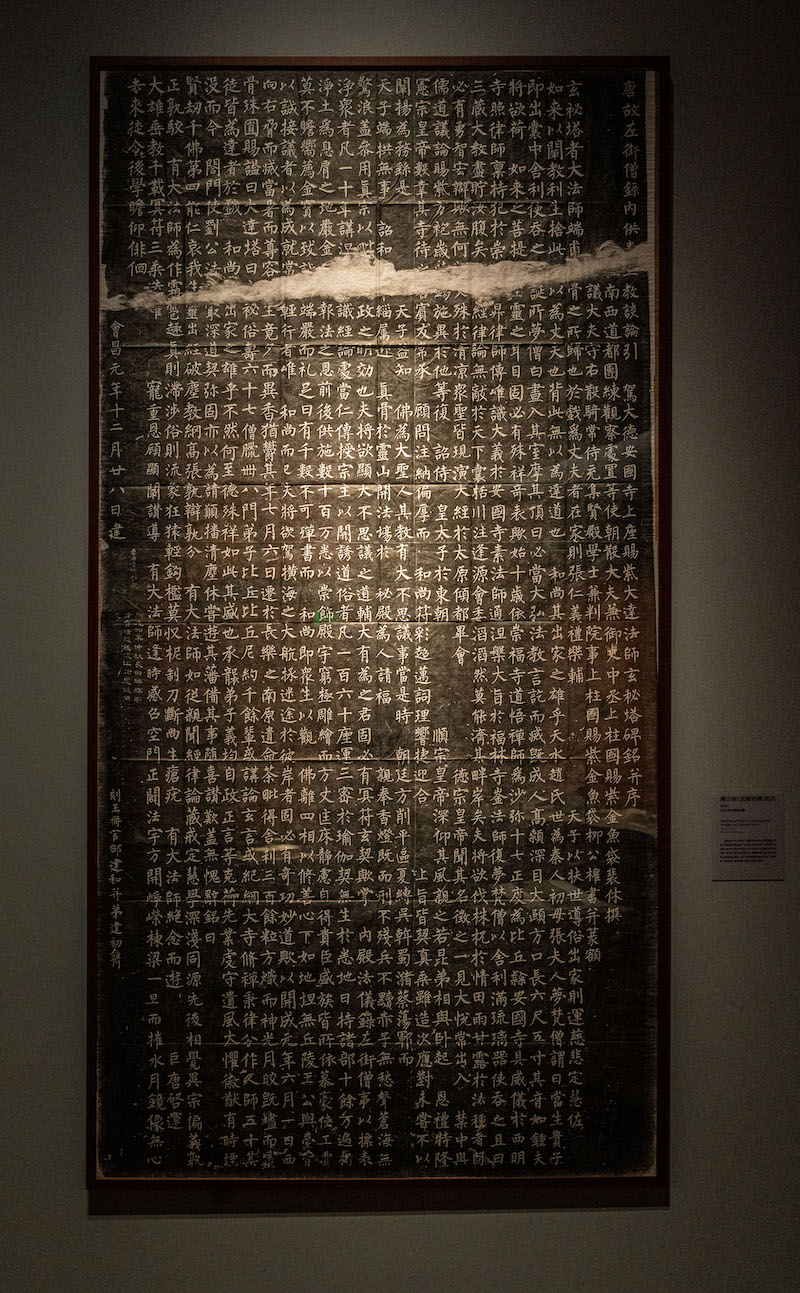 唐故左街僧錄內供 教談論引 駕大德安國寺上座賜紫大達法師玄秘塔碑銘并序
南西道都團練觀察處置等使朝散大夫兼御史中丞上柱國賜紫金魚袋裴休撰
議大夫守右散騎常侍充集賢殿學士兼判院事上柱國賜紫金魚袋柳公權書并篆額
玄秘塔者大法師端甫 骨之所歸也於戲為丈夫者在家則張仁義禮樂輔 天子以扶世導俗出家則運慈悲定慧佐
如來以闡教利生捨此 以為丈夫也背此無以為達道也 和尚其出家之雄乎天水趙氏世為秦人初母張夫人夢梵僧謂曰當生貴子
即出囊中舍利使吞之 誕所夢僧白晝入其室摩其頂曰必當大弘法教言訖而滅既成人高顙深目大頤方口長六尺五寸其音如鍾夫
將欲荷 如來之菩提 生靈之耳目固必有殊祥奇表歟始十歲依崇福寺道悟禪師為沙彌十七正度為比丘隸安國寺具威儀於西明
寺照律師稟持犯於崇 昇律師傳唯識大義於安國寺素法師通涅槃大旨於福林寺崟法師復夢梵僧以舍利滿琉璃器使吞之且曰
三藏大教盡貯汝腹矣 經律論無敵於天下囊括川注逢源會委滔滔然莫能濟其畔岸矣夫將欲伐株杌於情田雨甘露於法種者固
必有勇智宏辯歟無何 文殊於清涼眾聖皆現演大經於太原傾都畢會 德宗皇帝聞其名徵之一見大悅常出入 禁中與
儒道議論賜紫方袍歲 錫施異於他等復 詔侍 皇太子於東朝 順宗皇帝深仰其風親之若昆弟相與臥起 恩禮特隆
憲宗皇帝數幸其寺待 若賓友常承 顧問注納偏厚而 和尚符彩超邁詞理響捷迎合 上旨皆契真乘雖造次應對未嘗不以
闡揚為務繇是 天子益知 佛為大聖人其教有大不思議事當是時 朝廷方削平區夏縛吳斡蜀瀦蔡蕩鄆而
天子端拱無事 詔和 緇屬迎 真骨於靈山開法場於 秘殿為人請福 親奉香燈既而刑不殘兵不黷赤子無愁聲蒼海無
驚浪蓋參用真宗以毗 政之明效也夫將欲顯大不思議之道輔大有為之君固必有冥符玄契歟掌 內殿法儀錄左街僧事以摽表
淨眾者凡一十年講涅 識經論處當仁傳授宗主以開誘道俗者凡一百六十座運三密於瑜伽契無生於悉地日持諸部十餘万遍指
淨土為息肩之地嚴金 報法之恩前後供施數十百万悉以崇飾殿宇窮極雕繪而方丈匡床靜慮自得貴臣盛族皆所依慕豪俠工賈
莫不瞻嚮薦金寶以致誠 端嚴而礼足日有千數不可殫書而 和尚即眾生以觀 佛離四相以修善心下如地坦無丘陵王公輿臺皆
以誠接議者以為成就常 輕行者唯 和尚而已夫將欲駕橫海之大航拯迷途於彼岸者固必有奇功妙道歟以開成元年六月一日西
向右脅而滅當暑而尊容 生竟夕而異香猶鬱其年七月六日遷於長樂之南原遺命荼毗得舍利三百餘粒方熾而神光月皎既燼而靈
骨珠圓賜謚曰大達塔曰 秘俗壽六十七僧臘卌八門弟子比丘比丘尼約千餘輩或講論玄言或紀綱大寺修禪秉律分作人師五十其
徒皆為達者於戲 和尚 出家之雄乎不然何至德殊祥如此其盛也承襲弟子義均自政正言等克荷先業虔守遺風大懼徽猷有時堙
沒而今 閤門使劉公法 最深道契彌固亦以為請願播清塵休嘗遊其藩備其事隨喜讚歎蓋無愧辭銘曰
賢劫千佛第四能仁哀我生 出經破塵教網高張孰辯孰分 有大法師如從親聞經律論藏戒定慧學深淺同源先後相覺異宗偏義孰
正孰駁 有大法師為作霜雹趣真則滯涉俗則流象狂猿輕鉤檻莫收柅制刀斷尚生瘡疣 有大法師絕念而遊 巨唐啟運
大雄垂教千載冥符三乘迭 寵重恩顧顯闡讚導 有大法師逢時感召空門正闢法宇方開崢嶸棟梁一旦而摧水月鏡像無心
去來徒令後學瞻仰徘徊
會昌元年十二月廿八日建
刻玉冊官邵建和并弟建初鐫